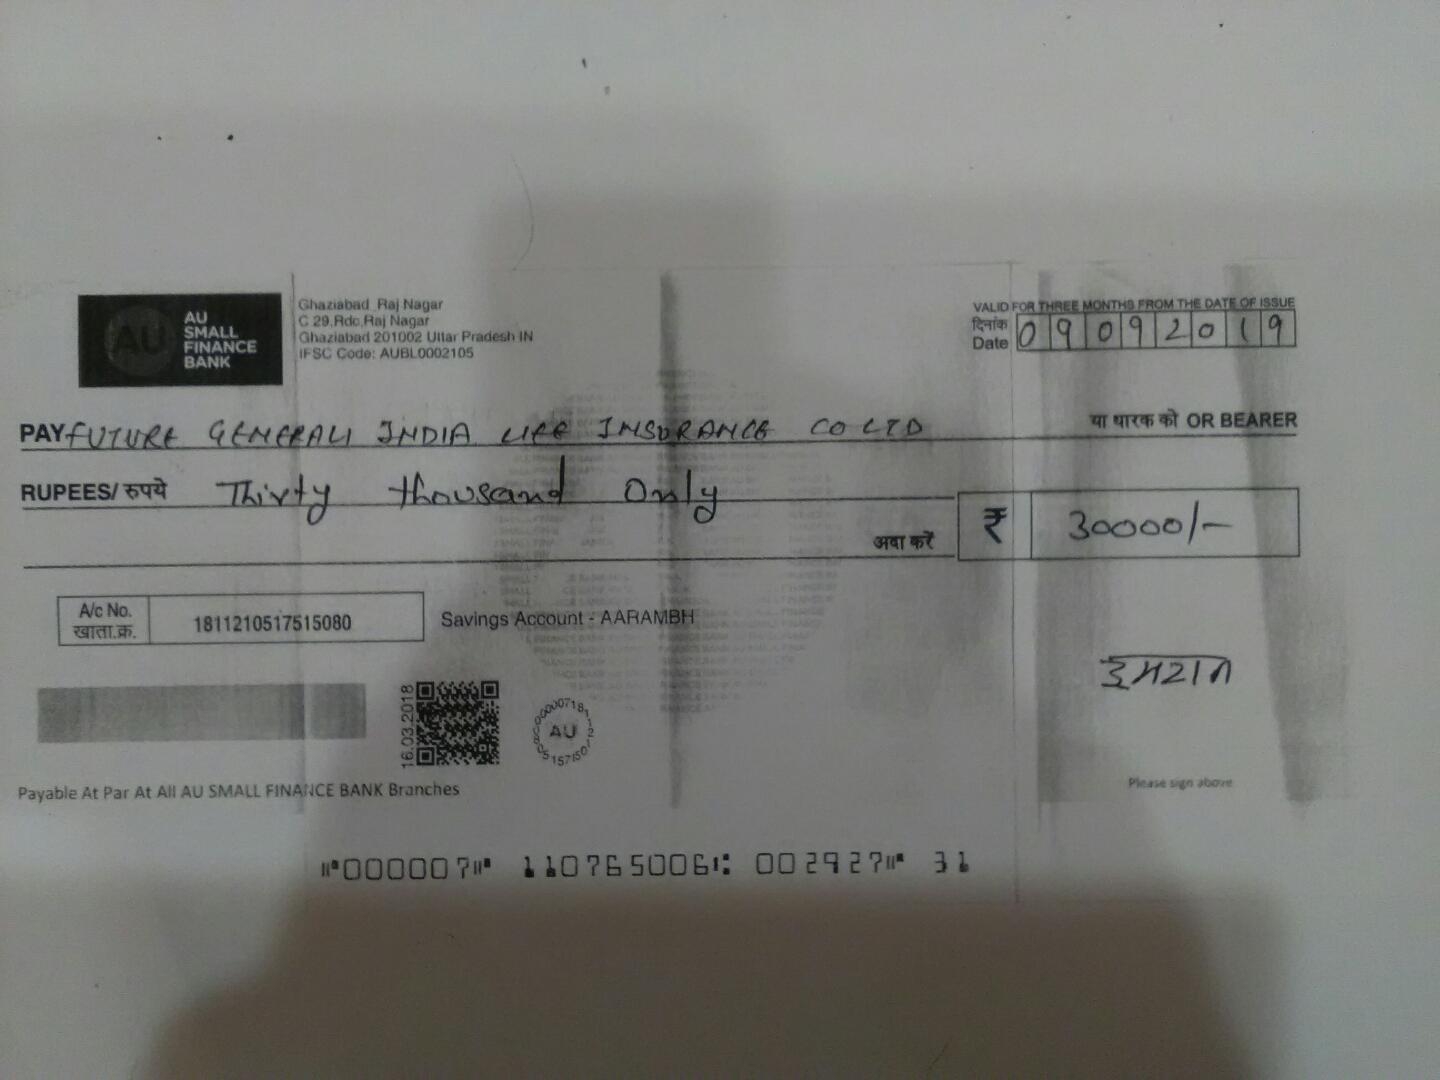 AU
SMALL
FINANCE
BANK
Ghaziabad Raj Nagar
C 29,Rdc,Raj Nagar
Ghaziabad 201002 Uttar Pradesh IN
IFSC Code: AUBL0002105
VALID FOR THREE MONTHS FROM THE DATE OF ISSUE
दिनांक
Date 09092019
PAY FUTURE GENERALI INDIA LIFE INSURANCE CO LTD या धारक को OR BEARER
RUPEES/ रुपये Thirty thousand Only
अदा करें ₹ 30000/-
A/c No.
खाता.क्र. 1811210517515080 Savings Account - AARAMBH
इमरान
16.03.2018
AU
Please sign above
Payable At Par At All AU SMALL FINANCE BANK Branches
⑈000007⑈ 110765006⑆ 002927⑈ 31